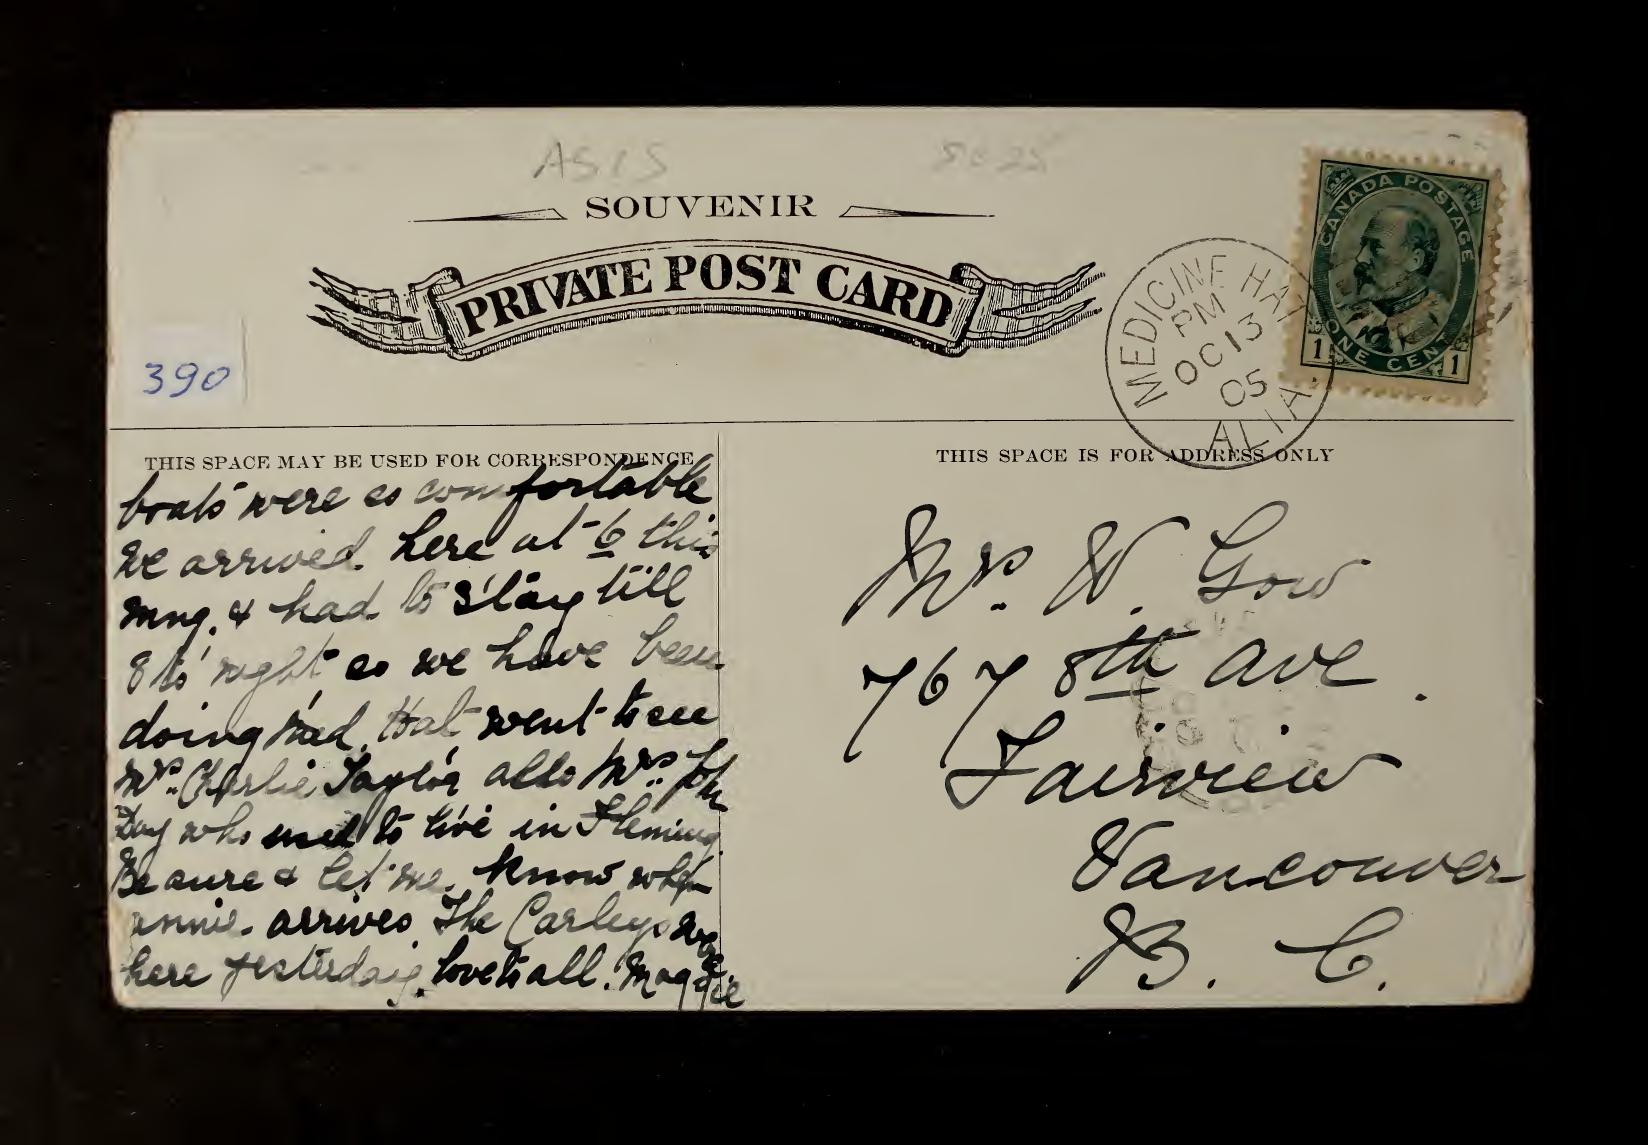 ASIS
SOUVENIR
PRIVATE POST CARD
CANADA POSTAGE
ONE CENT
1 1
MEDICINE HAT
PM
OC 13
05
ALTA
390
THIS SPACE MAY BE USED FOR CORRESPONDENCE
THIS SPACE IS FOR ADDRESS ONLY
boats were so comfortable
we arrived here at 6 this
mng. & had to stay till
8 to night so we have been
doing Med. Hat went to see
Mrs. Charlie Taylor also Mrs. John
Day who used to live in Fleming.
Be sure & let me know when
annie arrives The Carleys were
here yesterday. love to all. Maggie
Mrs. W. Gow
767 8th ave.
Fairview
Vancouver
B. C.